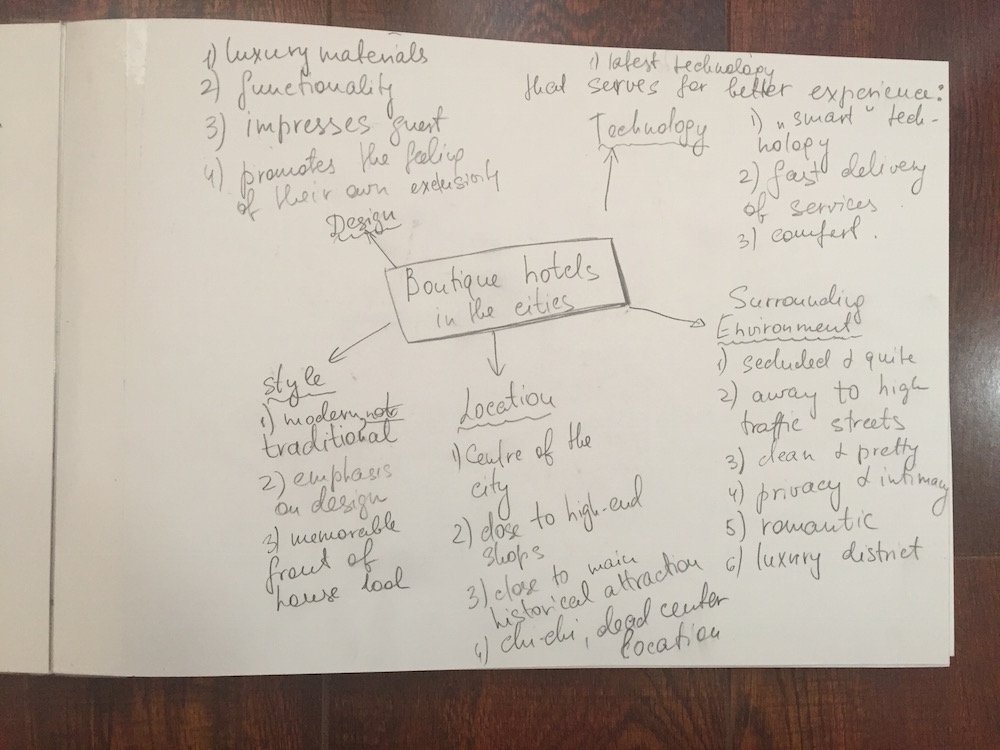 1) luxury materials
2) functionality
3) impresses guest
4) promotes the feeling
of their own exclusivity
Design
1) latest technology
that serves for better experience:
Technology
1) „smart" tech-
nology
2) fast delivery
of services
3) comfort.
Boutique hotels
in the cities
Surrounding
Environment
1) secluded & quite
2) away to high
traffic streets
3) clean & pretty
4) privacy & intimacy
5) romantic
6) luxury district
Style
1) modern, not
traditional
2) emphasis
on design
3) memorable
front of
house
Location
1) Centre of the
city
2) close to high-end
shops
3) close to main
historical attraction
4) chi-chi, dead center
location